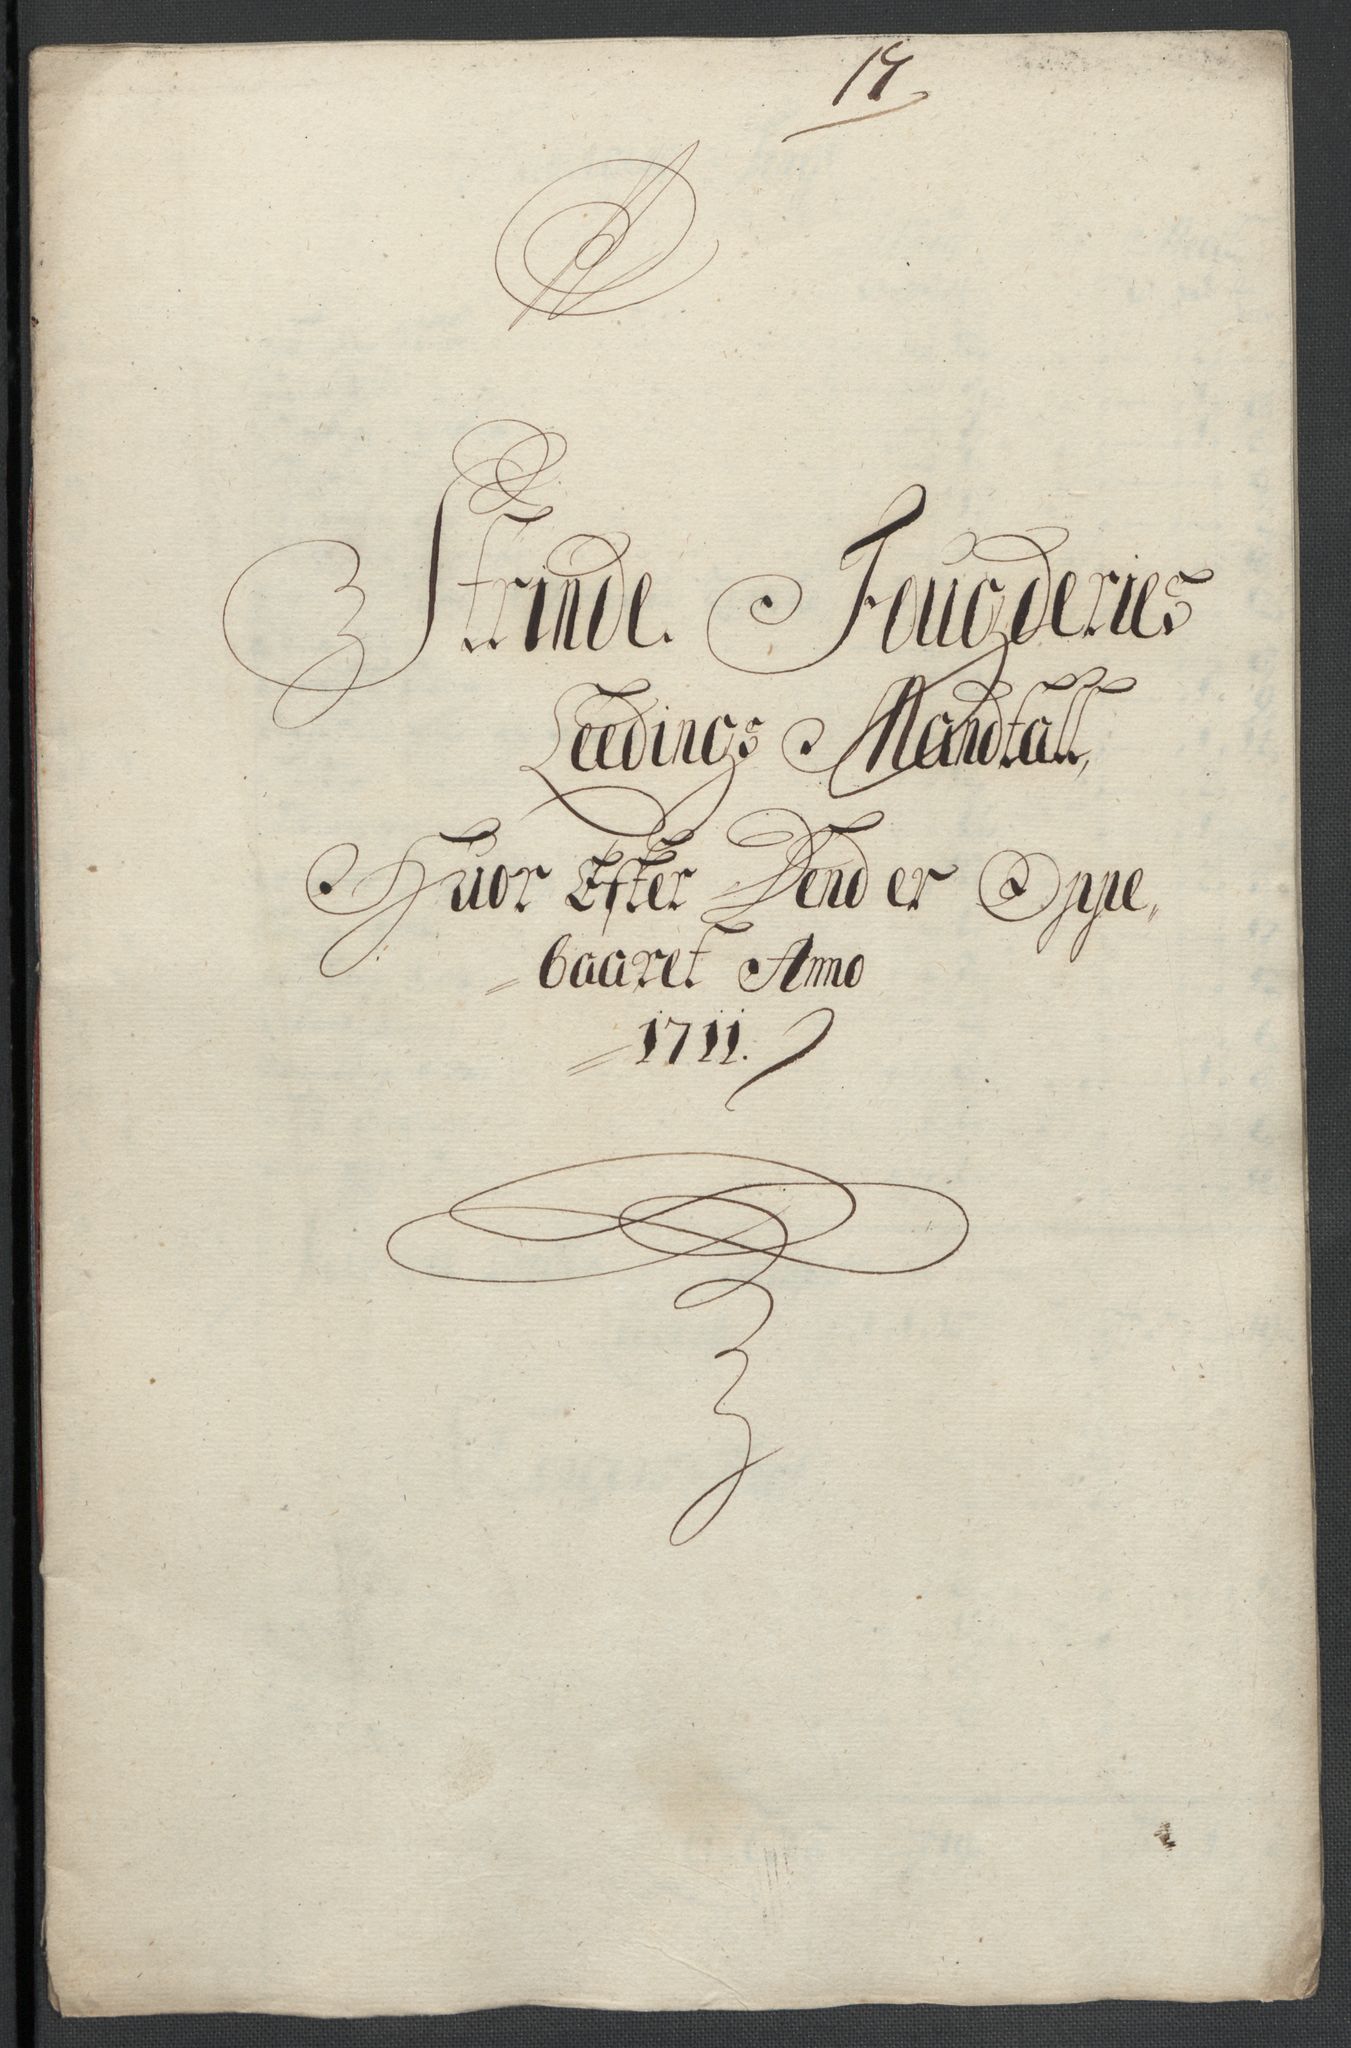 17
Strinde Fougderies
Leedings Mandtall,
Huor Efter Dend er Oppe,,
=baaret Anno
=1711.